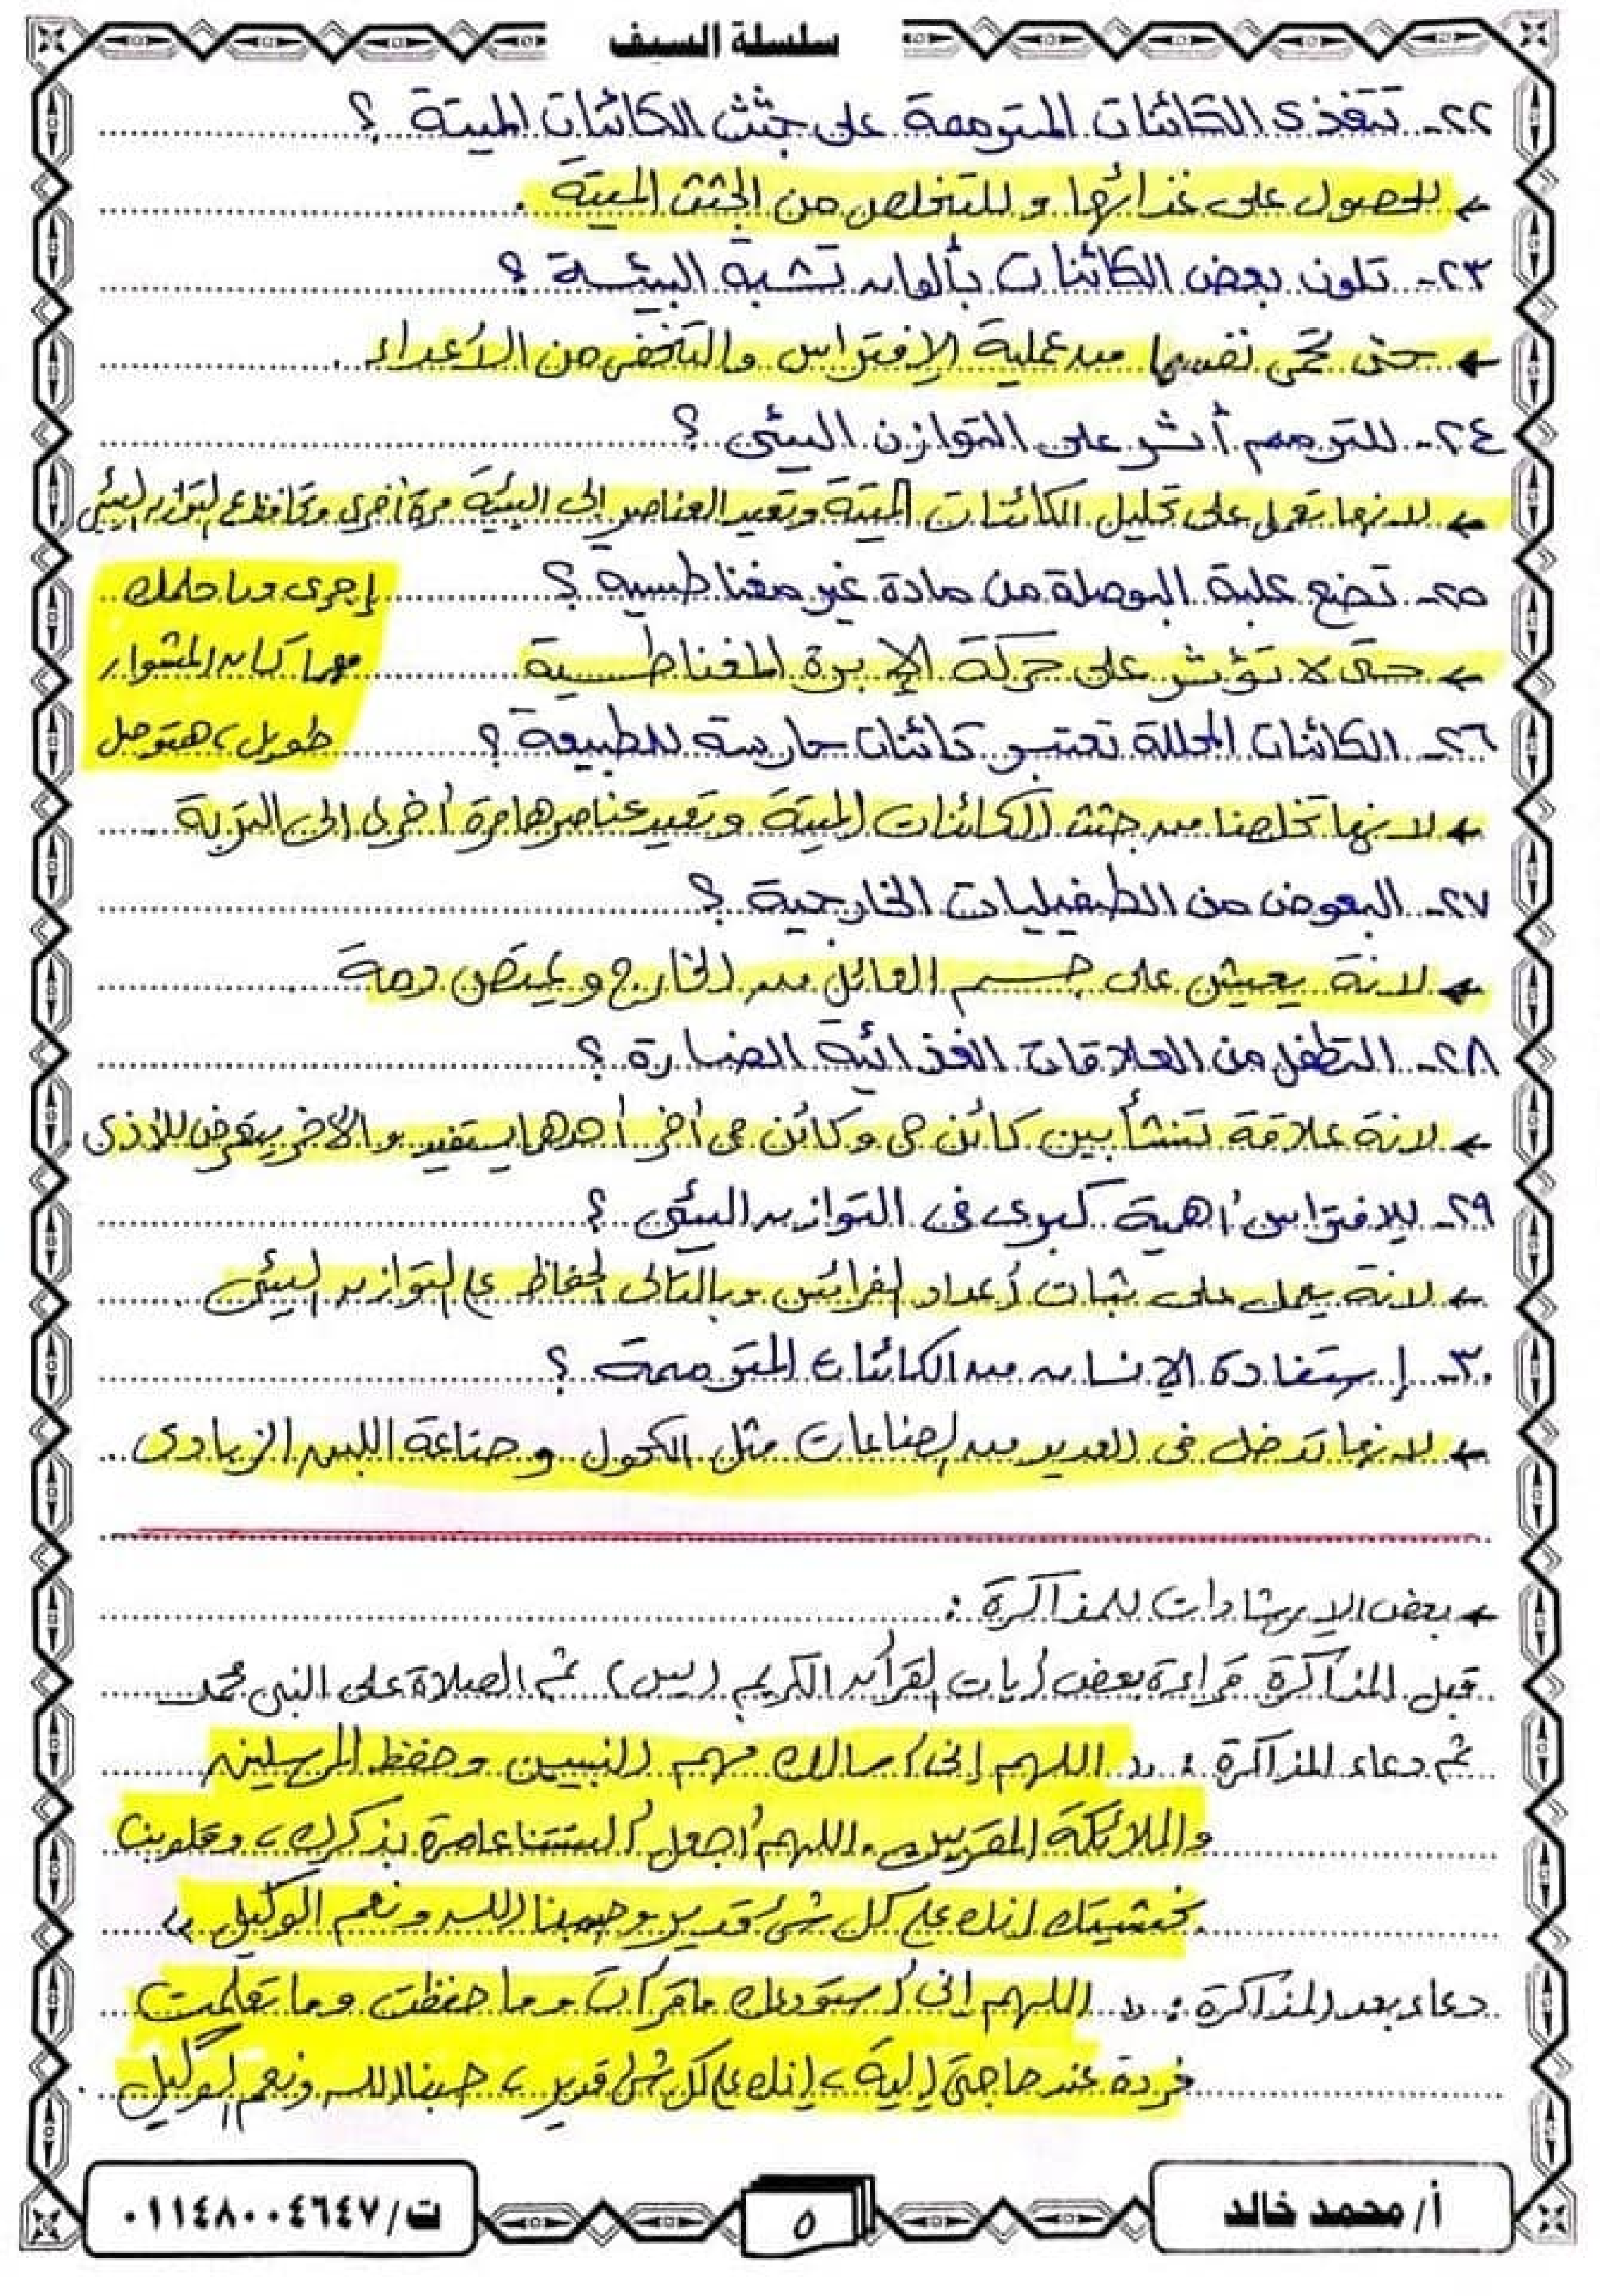 سلسلة السيف
٢٢- تتغذى الكائنات المترممة على جثث الكائنات الميتة ؟
← للحصول على غذائها و للتخلص من الجثث الميتة .
٢٣- تلون بعض الكائنات بألوان تشبة البيئة ؟
← حتى تحمى نفسها من عملية الإفتراس والتخفى من الأعداء .
٢٤- للترمم أثر على التوازن البيئى ؟
← لانها تعمل على تحليل الكائنات الميتة وتعيد العناصر إلى البيئة مرة أخرى وتحافظ ع التوازن البيئى
٢٥- تصنع علبة البوصلة من مادة غير مغناطيسية ؟
إجرى ورا حلمك
← حتى لا تؤثر على حركة الإبرة المغناطيسية
مهما كان المشوار
٢٦- الكائنات المحللة تعتبر كائنات حارسة للطبيعة ؟
طويل، هتوصل
← لانها تخلصنا من جثث الكائنات الميتة وتعيد عناصرها مرة أخرى الى التربة .
٢٧- البعوض من الطفيليات الخارجية ؟
← لانة يعيش على جسم العائل من الخارج و يمتص دمة
٢٨- التطفل من العلاقات الغذائية الضارة ؟
← لانة علاقة تنشأ بين كائن حى و كائن حى أخر أحدهما يستفيد و الاخر يتعرض للأذى
٢٩- للافتراس أهمية كبرى فى التوازن البيئى ؟
← لانة يعمل على ثبات أعداد الفرائس وبالتالى الحفاظ ع التوازن البيئى .
٣٠- إستفادة الإنسان من الكائنات المترممة ؟
← لانها تدخل فى العديد من الصناعات مثل الكحول و صناعة اللبن الزبادى .
← بعض الإرشادات للمذاكرة :
قبل المذاكرة قراءة بعض أيات القرأن الكريم (يس) ثم الصلاة على النبى محمد
ثم دعاء المذاكرة : " اللهم إنى أسالك فهم النبيين وحفظ المرسلين
والملائكة المقربين، اللهم أجعل ألسنتنا عامرة بذكرك، وقلوبنا
بخشيتك إنك على كل شئ قدير وحسبنا الله ونعم الوكيل "
دعاء بعد المذاكرة : " اللهم إنى أستودعك ما قرأت وما حفظت وما تعلمت
فردة عند حاجتى إلية، إنك على كل شئ قدير، حسبنا الله ونعم الوكيل .
أ/ محمد خالد
٥
ت/ ٠١١٤٨٠٠٤٦٤٧